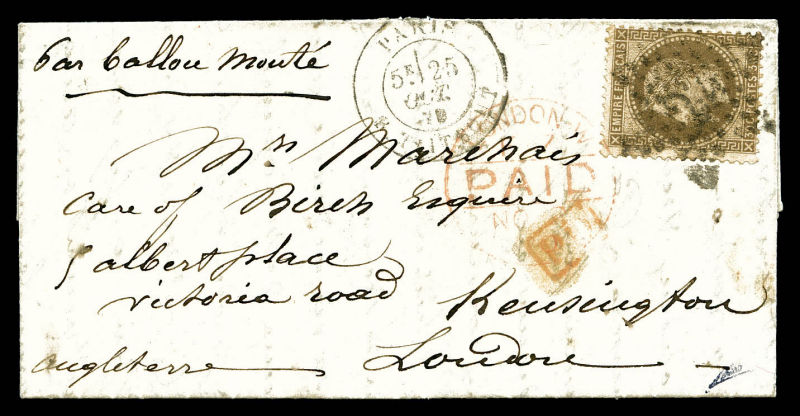 par ballon monté
PARIS
5E 25
OCT.
70
EMPIRE FRANÇAIS
LONDON
PAID
Mrs Marchais
Care of Birch Esquire
5 albert place
victoria road Kensington
angleterre Londres